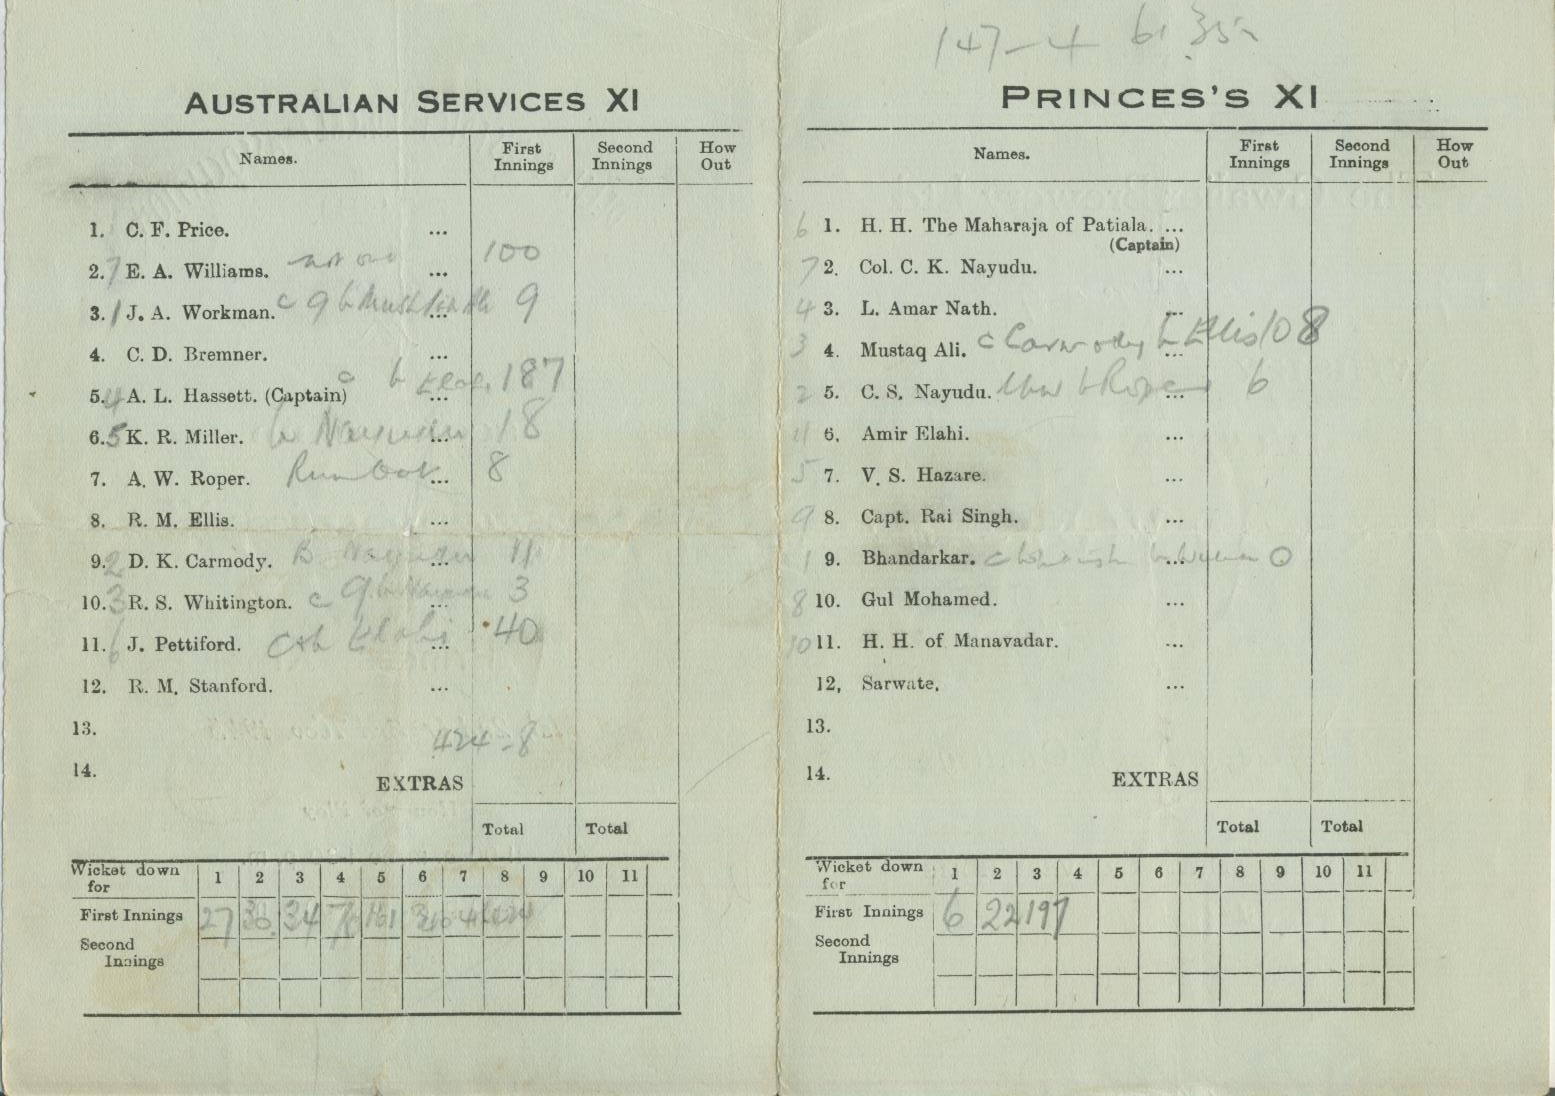 147-4
AUSTRALIAN SERVICES XI
Names. First Innings Second Innings How Out
1. C. F. Price. ...
2. 7 E. A. Williams. not out ... 100
3. 1 J. A. Workman. c g b Mushtaq Ali ... 9
4. C. D. Bremner. ...
5. 4 A. L. Hassett. (Captain) c b Elahi ... 187
6. 5 K. R. Miller. b Nayudu ... 18
7. A. W. Roper. Run Out ... 8
8. R. M. Ellis. ...
9. 2 D. K. Carmody. B Nayudu ... 11
10. 3 R. S. Whitington. c g b Nayudu ... 3
11. 6 J. Pettiford. c & b Elahi ... 40
12. R. M. Stanford. ...
13.
424-8
14.
EXTRAS
Total Total
Wicket down for 1 2 3 4 5 6 7 8 9 10 11
First Innings 27 30 34 76 161
Second Innings
PRINCES'S XI
Names. First Innings Second Innings How Out
6 1. H. H. The Maharaja of Patiala. ...
(Captain)
7 2. Col. C. K. Nayudu. ...
4 3. L. Amar Nath. ...
3 4. Mustaq Ali. c Carmody b Ellis ... 108
2 5. C. S. Nayudu. lbw b Roper ... 6
11 6. Amir Elahi. ...
5 7. V. S. Hazare. ...
9 8. Capt. Rai Singh. ...
1 9. Bhandarkar. c b ... 0
8 10. Gul Mohamed. ...
10 11. H. H. of Manavadar. ...
12, Sarwate. ...
13.
14.
EXTRAS
Total Total
Wicket down for 1 2 3 4 5 6 7 8 9 10 11
First Innings 6 22 197
Second Innings